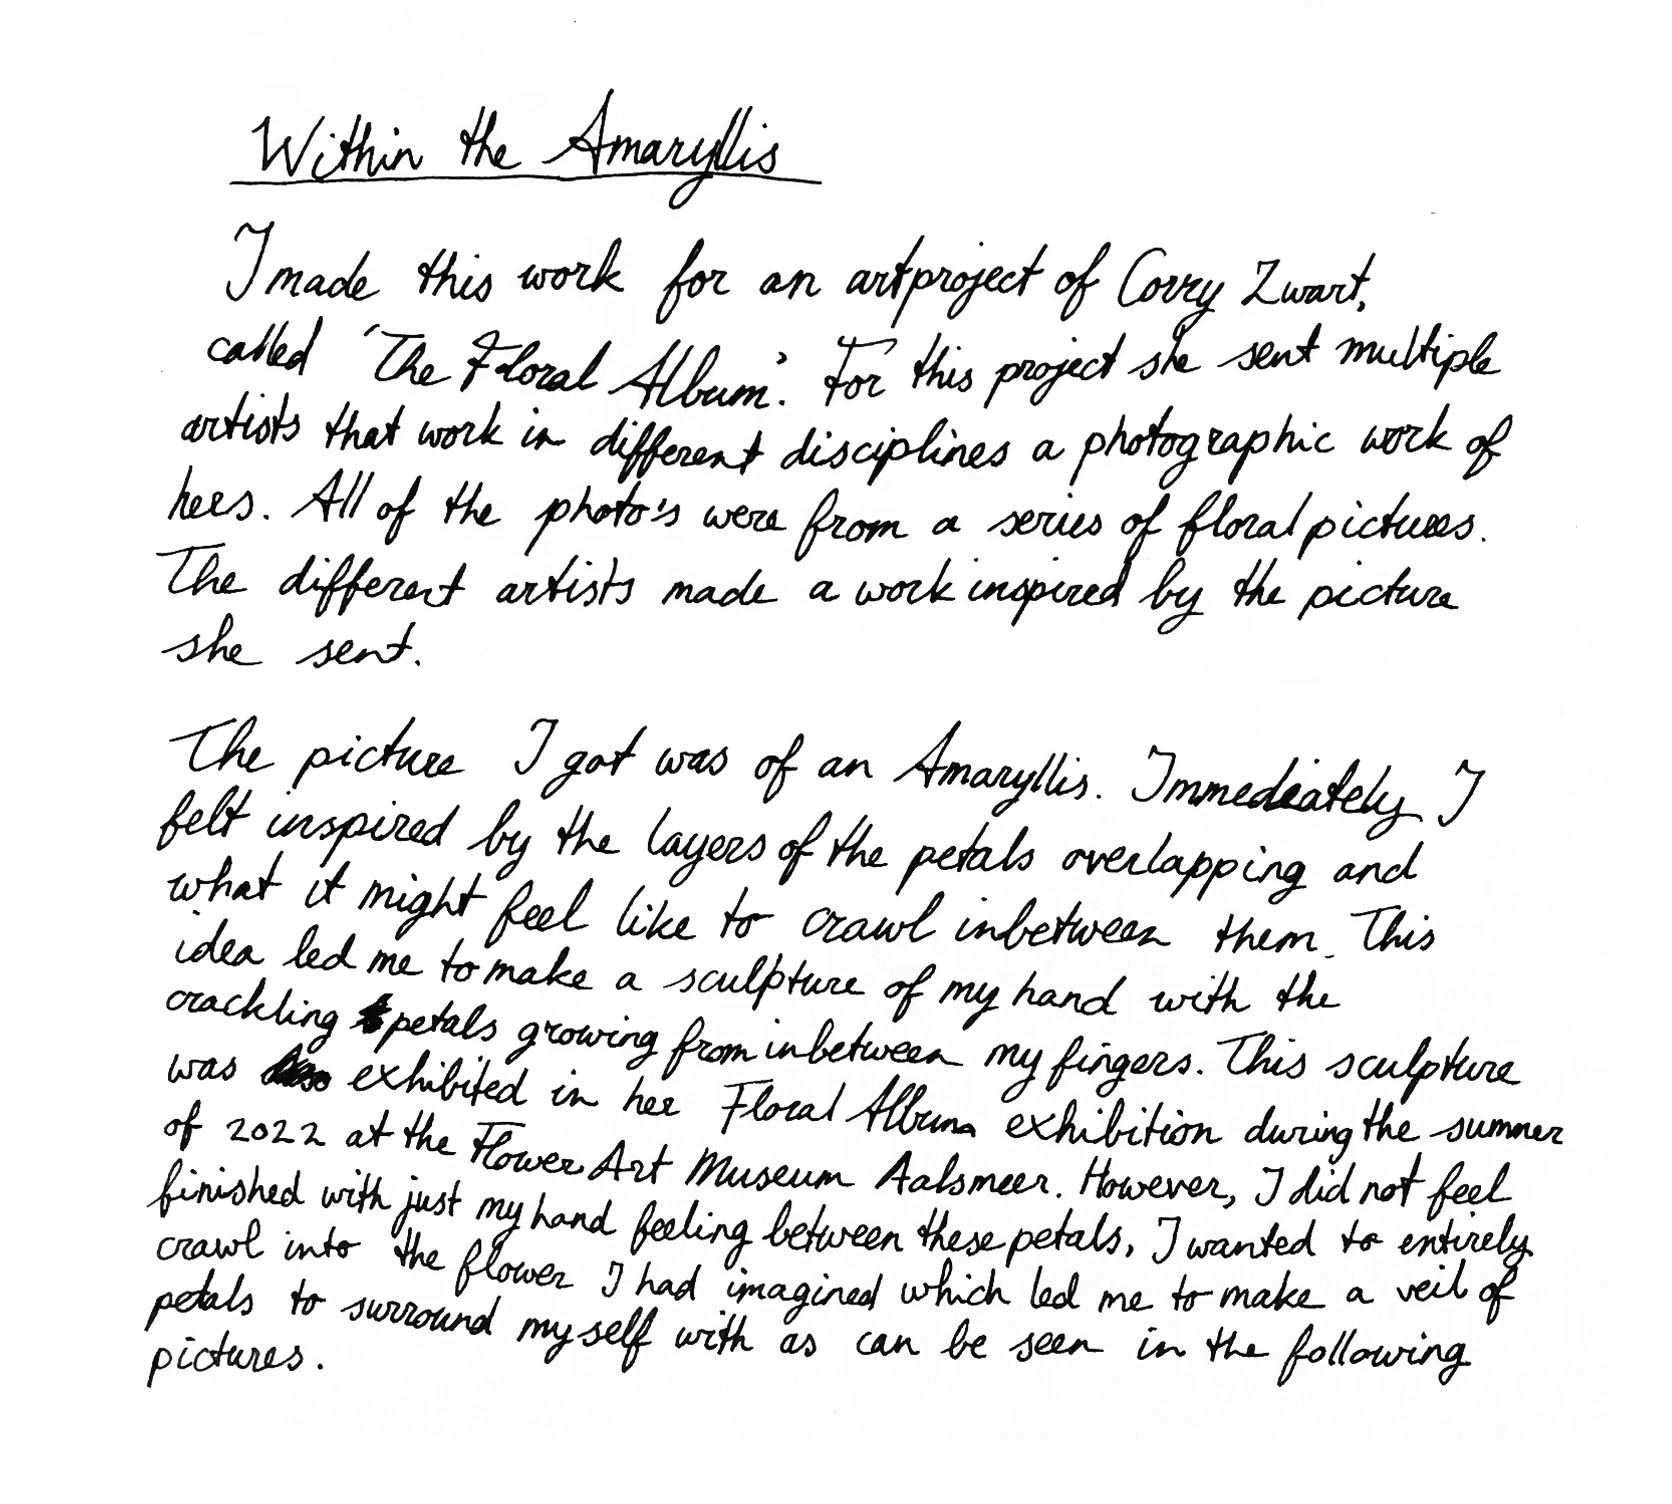 Within the Amaryllis
I made this work for an artproject of Corry Zwart,
called 'The Floral Album'. For this project she sent multiple
artists that work in different disciplines a photographic work of
hers. All of the photo's were from a series of floral pictures.
The different artists made a work inspired by the picture
she sent.
The picture I got was of an Amaryllis. Immediately I
felt inspired by the layers of the petals overlapping and
what it might feel like to crawl inbetween them. This
idea led me to make a sculpture of my hand with the
crackling petals growing from inbetween my fingers. This sculpture
was exhibited in her Floral Album exhibition during the summer
of 2022 at the Flower Art Museum Aalsmeer. However, I did not feel
finished with just my hand feeling between these petals, I wanted to entirely
crawl into the flower I had imagined which led me to make a veil of
petals to surround myself with as can be seen in the following
pictures.